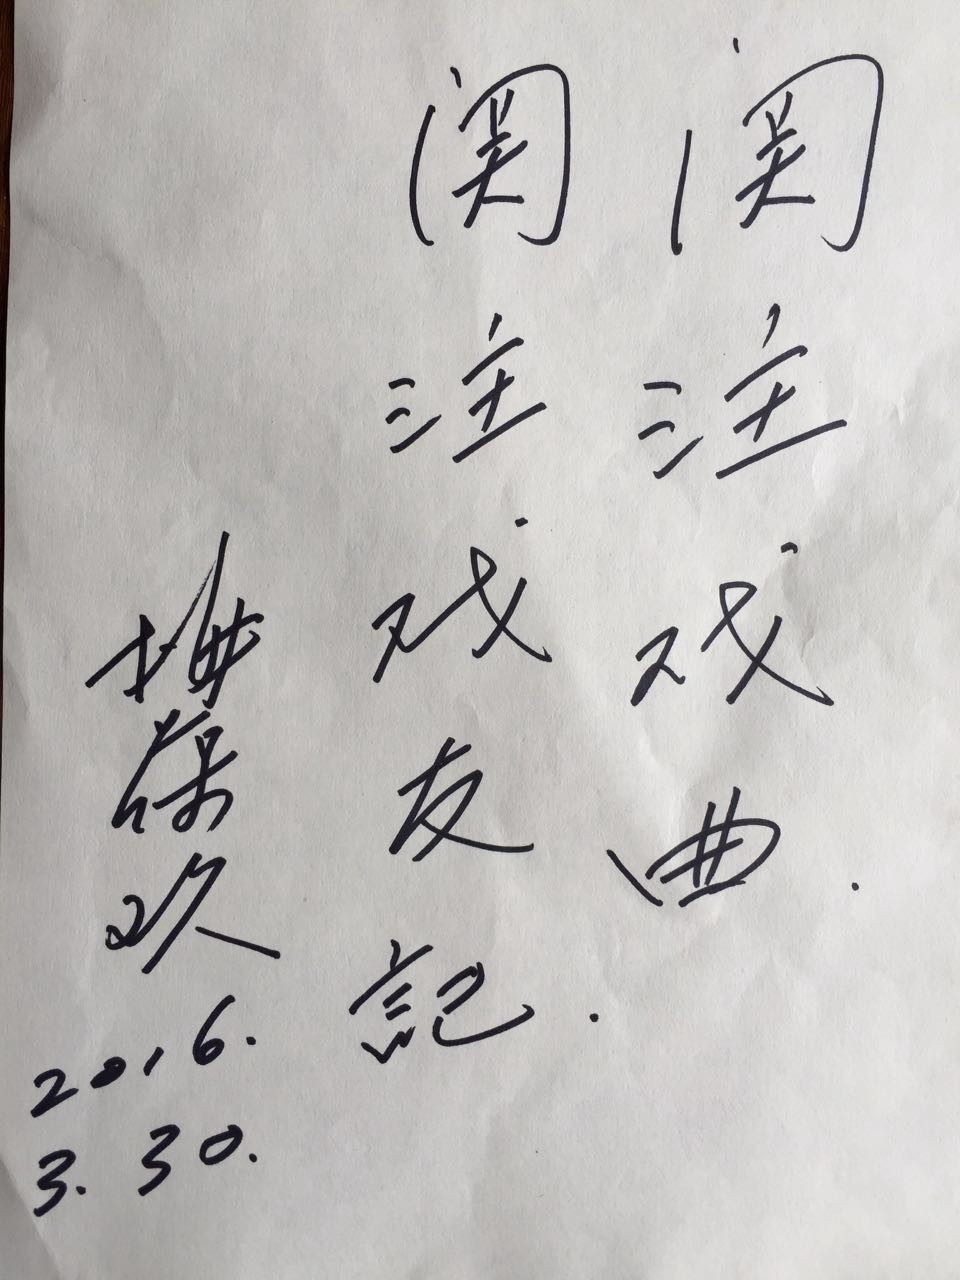 关注戏曲.
关注戏友記.
梅葆玖
2016.
3.30.